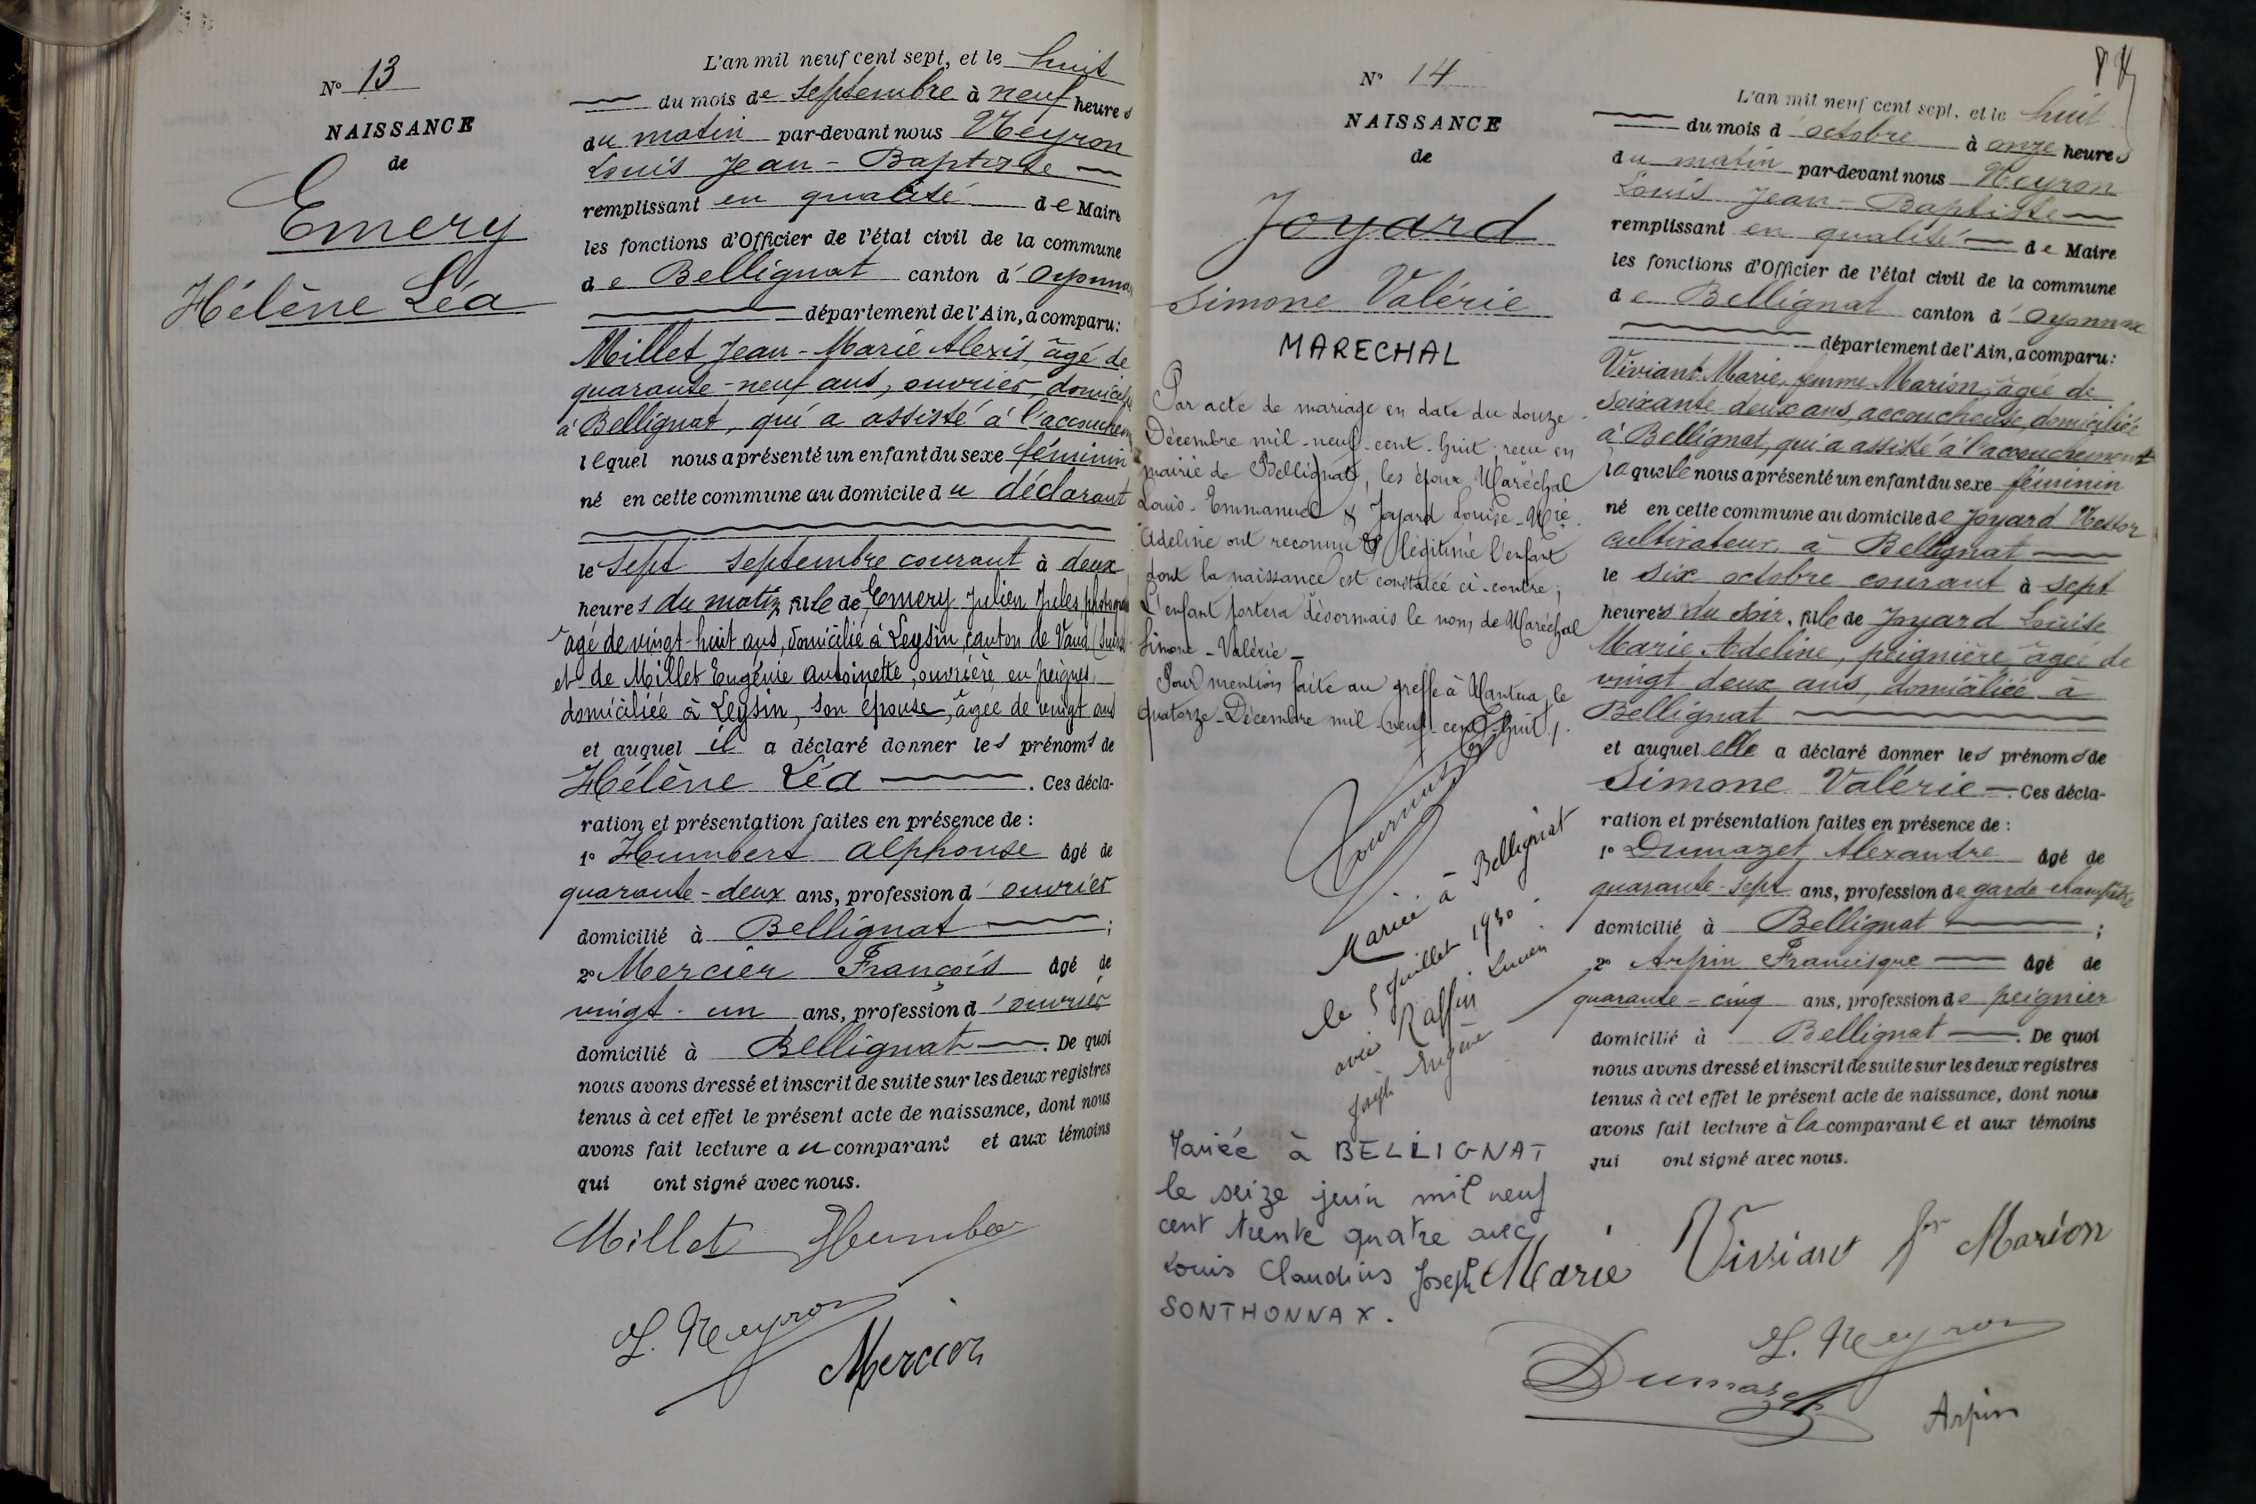 N° 13
NAISSANCE
de
Emery
Hélène Léa
L'an mil neuf cent sept, et le huit
du mois de septembre à neuf heures
du matin par-devant nous Neyron
Louis Jean-Baptiste
remplissant en qualité de Maire
les fonctions d'Officier de l'état civil de la commune
de Bellignat canton d'Oyonnax
département de l'Ain, a comparu:
Millet Jean-Marie Alexis, âgé de
quarante-neuf ans, ouvrier, domicilié
à Bellignat, qui a assisté à l'accouchement
lequel nous a présenté un enfant du sexe féminin
né en cette commune au domicile du déclarant
le sept septembre courant à deux
heures du matin, fille de Emery Julien Jules
âgé de vingt-huit ans, domicilié à Leysin, canton de Vaud (Suisse)
et de Millet Eugénie Antoinette, ouvrière en peignes,
domiciliée à Leysin, son épouse, âgée de vingt ans
et auquel il a déclaré donner les prénoms de
Hélène Léa . Ces décla-
ration et présentation faites en présence de :
1° Humbert Alphonse âgé de
quarante-deux ans, profession d'ouvrier
domicilié à Bellignat ;
2° Mercier François âgé de
vingt-un ans, profession d'ouvrier
domicilié à Bellignat . De quoi
nous avons dressé et inscrit de suite sur les deux registres
tenus à cet effet le présent acte de naissance, dont nous
avons fait lecture au comparant et aux témoins
qui ont signé avec nous.
Millet Humbert
L. Neyron
Mercier
N° 14
NAISSANCE
de
Joyard
Simone Valérie
MARECHAL
Par acte de mariage en date du douze
Décembre mil-neuf-cent-huit, reçu en
mairie de Bellignat, les époux Maréchal
Louis-Emmanuel & Joyard Louise-Mie
Adeline ont reconnu & légitimé l'enfant
dont la naissance est constatée ci-contre;
L'enfant portera désormais le nom de Maréchal
Simone-Valérie-
Pour mention faite au greffe à Nantua, le
quatorze Décembre mil-neuf-cent-huit./.
Mariée à Bellignat
le 5 Juillet 1930
avec Raffin Lucien
Joseph Eugène
Mariée à BELLIGNAT
le seize juin mil neuf
cent trente quatre avec
Louis Claudius Joseph
SONTHONNAX.
84
L'an mil neuf cent sept, et le huit
du mois d'octobre à onze heures
du matin par-devant nous Neyron
Louis Jean-Baptiste
remplissant en qualité de Maire
les fonctions d'Officier de l'état civil de la commune
de Bellignat canton d'Oyonnax
département de l'Ain, a comparu:
Viviant Marie, femme Marion, âgée de
soixante deux ans, accoucheuse, domiciliée
à Bellignat, qui a assisté à l'accouchement
laquelle nous a présenté un enfant du sexe féminin
né en cette commune au domicile de Joyard Nestor
cultivateur à Bellignat
le six octobre courant à sept
heures du soir, fille de Joyard Louise
Marie Adeline, peignière, âgée de
vingt deux ans, domiciliée à
Bellignat
et auquel elle a déclaré donner les prénoms de
Simone Valérie . Ces décla-
ration et présentation faites en présence de :
1° Dumazet Alexandre âgé de
quarante-sept ans, profession de garde-champêtre
domicilié à Bellignat ;
2° Arpin Francisque âgé de
quarante-cinq ans, profession de peignier
domicilié à Bellignat . De quoi
nous avons dressé et inscrit de suite sur les deux registres
tenus à cet effet le présent acte de naissance, dont nous
avons fait lecture à la comparante et aux témoins
qui ont signé avec nous.
Marie Viviant fe Marion
L. Neyron
Dumazet
Arpin